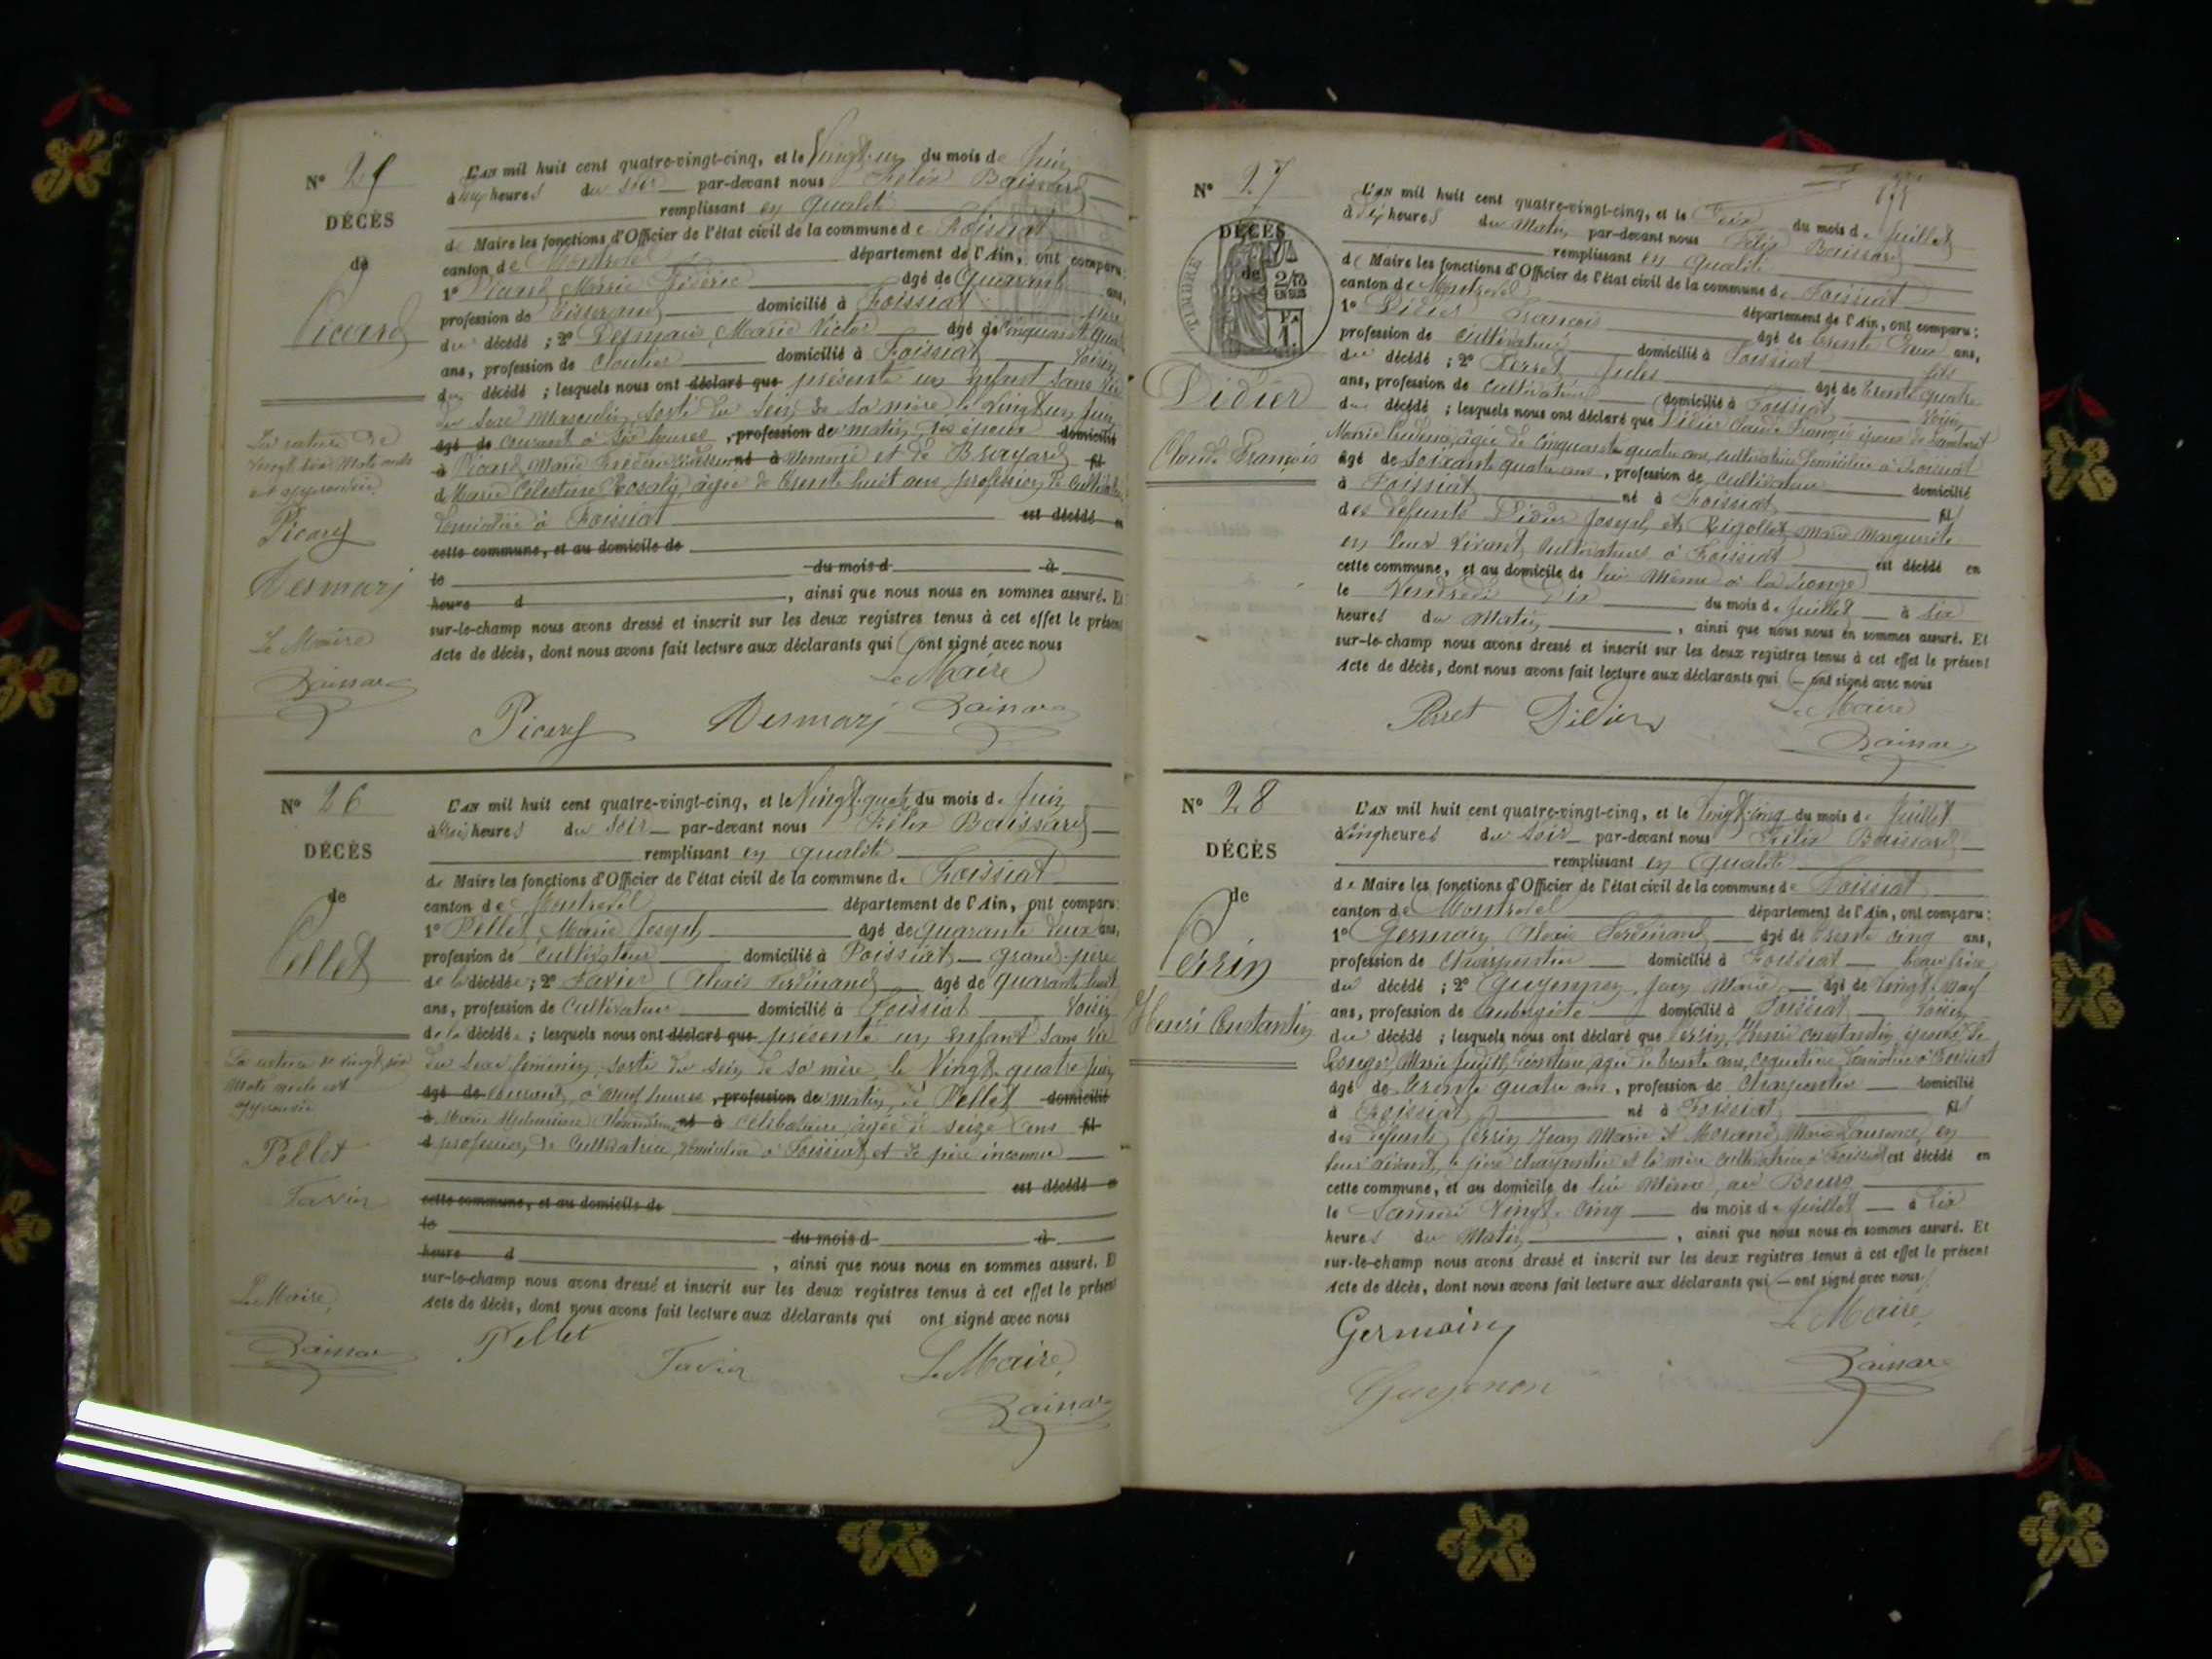 N° 25
DÉCÈS
de
Picard
La rature de
vingt six mots nuls
est approuvée
Picard
Desmaris
Le Maire
L'an mil huit cent quatre-vingt-cinq, et le Vingt-un du mois de Juin
à heures du soir par-devant nous Félix Baissard
remplissant en qualité
de Maire les fonctions d'Officier de l'état civil de la commune de Foissiat
canton de Montrevel département de l'Ain, ont comparu:
1° Picard Marie Frédéric âgé de Quarante ans,
profession de Tisserand domicilié à Foissiat père
du décédé ; 2° Desmaris Marie Victor âgé de Cinquante quatre
ans, profession de Cloutier domicilié à Foissiat Voisin
du décédé ; lesquels nous ont déclaré que présenté un Enfant sans vie
du sexe Masculin sorti du sein de sa mère le vingt un juin
âgé de courant à six heures , profession du matin, des époux domicilié
à Picard Marie Frédéric né à et de Brayard fil
d Marie Célestine Rosalie âgée de trente huit ans, profession de Cultivatrice
domiciliée à Foissiat est décédé en
cette commune, et au domicile de
le du mois d à
heure d , ainsi que nous nous en sommes assuré. Et
sur-le-champ nous avons dressé et inscrit sur les deux registres tenus à cet effet le présent
Acte de décès, dont nous avons fait lecture aux déclarants qui ont signé avec nous
Le Maire
Picard Desmaris
N° 26
DÉCÈS
de
Pellet
La rature de vingt six
mots nuls est
approuvée
Pellet
Favier
Le Maire
L'an mil huit cent quatre-vingt-cinq, et le Vingt-quatre du mois de Juin
à heures du soir par-devant nous Félix Baissard
remplissant en qualité
de Maire les fonctions d'Officier de l'état civil de la commune de Foissiat
canton de Montrevel département de l'Ain, ont comparu:
1° Pellet Marie Joseph âgé de quarante deux ans,
profession de cultivateur domicilié à Foissiat grand-père
de la décédée ; 2° Favier Alexis Ferdinand âgé de quarante huit
ans, profession de Cultivateur domicilié à Foissiat Voisin
de la décédée ; lesquels nous ont déclaré que présenté un enfant sans vie
du sexe féminin, sorti du sein de sa mère, le Vingt quatre juin
âgé de courant, à neuf heures , profession du matin, de Pellet domicilié
à Marie né à célibataire, âgée de seize ans fil
d profession de Cultivatrice, domiciliée à Foissiat et de père inconnu
est décédé en
cette commune, et au domicile de
le du mois d à
heure d , ainsi que nous nous en sommes assuré. Et
sur-le-champ nous avons dressé et inscrit sur les deux registres tenus à cet effet le présent
Acte de décès, dont nous avons fait lecture aux déclarants qui ont signé avec nous
Pellet Favier Le Maire,
N° 27
DÉCÈS
de
TIMBRE
2/10
EN SUS
1
Didier
Claude François
L'an mil huit cent quatre-vingt-cinq, et le Dix du mois de Juillet
à heures du Matin par-devant nous Félix Baissard
remplissant en qualité
de Maire les fonctions d'Officier de l'état civil de la commune de Foissiat
canton de Montrevel département de l'Ain, ont comparu:
1° Didier François âgé de trente deux ans,
profession de Cultivateur domicilié à Foissiat fils
du décédé ; 2° Perret Jules âgé de trente quatre
ans, profession de Cultivateur domicilié à Foissiat Voisin
du décédé ; lesquels nous ont déclaré que Didier Claude François époux de
Marie âgée de Cinquante quatre ans, cultivatrice domiciliée à Foissiat
âgé de Soixante quatre ans , profession de Cultivateur domicilié
à Foissiat né à Foissiat fils
des défunts Didier Joseph et Rigollet Marie Marguerite
en leur vivant Cultivateurs à Foissiat est décédé en
cette commune, et au domicile de lui même à la
le Vendredi Dix du mois de Juillet à six
heures du Matin , ainsi que nous nous en sommes assuré. Et
sur-le-champ nous avons dressé et inscrit sur les deux registres tenus à cet effet le présent
Acte de décès, dont nous avons fait lecture aux déclarants qui ont signé avec nous
Perret Didier Le Maire
N° 28
DÉCÈS
de
Perrin
Henri Constantin
L'an mil huit cent quatre-vingt-cinq, et le Vingt-cinq du mois de Juillet
à cinq heures du soir par-devant nous Félix Baissard
remplissant en qualité
de Maire les fonctions d'Officier de l'état civil de la commune de Foissiat
canton de Montrevel département de l'Ain, ont comparu:
1° Germain Alexis Ferdinand âgé de trente cinq ans,
profession de Charpentier domicilié à Foissiat beau frère
du décédé ; 2° Jean Marie âgé de Vingt-neuf
ans, profession de aubergiste domicilié à Foissiat Voisin
du décédé ; lesquels nous ont déclaré que Perrin Henri Constantin époux de
Marie Judith âgée de trente ans, coquetière domiciliée à Foissiat
âgé de trente quatre ans , profession de Charpentier domicilié
à Foissiat né à Foissiat fils
des défunts Perrin Jean Marie et Morand Marie Laurence en
leur vivant, le père charpentier et la mère cultivatrice à Foissiat est décédé en
cette commune, et au domicile de lui même, au Bourg
le Samedi Vingt-cinq du mois de Juillet à six
heures du Matin , ainsi que nous nous en sommes assuré. Et
sur-le-champ nous avons dressé et inscrit sur les deux registres tenus à cet effet le présent
Acte de décès, dont nous avons fait lecture aux déclarants qui ont signé avec nous
Germain Le Maire,